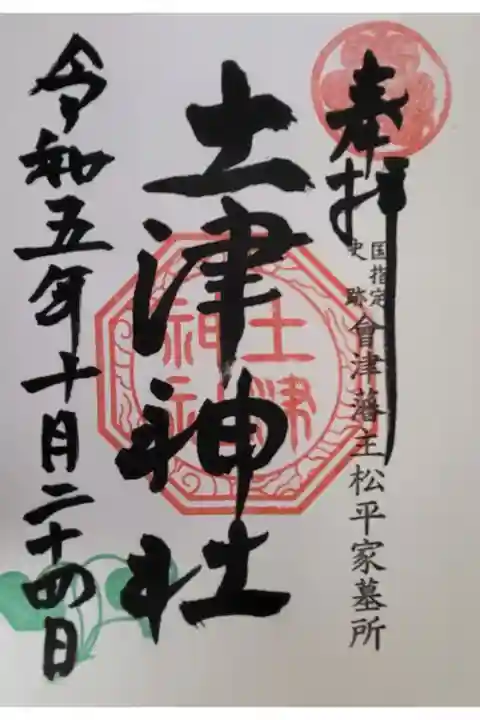 奉拝
国指定
史跡
會津藩主松平家墓所
土津神社
土津
神社
令和五年十月二十四日